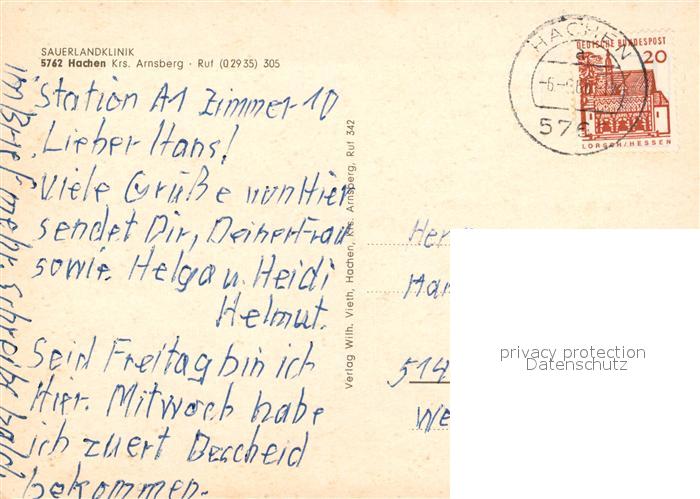 SAUERLANDKLINIK
5762 Hachen Krs. Arnsberg · Ruf (0 29 35) 305
Station A1 Zimmer 10
Lieber Hans!
Viele Grüße von Hier
sendet Dir, Deiner Frau
sowie. Helga u. Heidi
Helmut.
Seid Freitag bin ich
Hier. Mitwoch habe
ich zuert Bescheid
bekommen.
im Brief mehr. Schreibe
Verlag Wilh. Vieth, Hachen, Krs. Arnsberg, Ruf 342
HACHEN
576
DEUTSCHE BUNDESPOST
20
LORSCH/HESSEN
Her
Han
514
We
privacy protection
Datenschutz